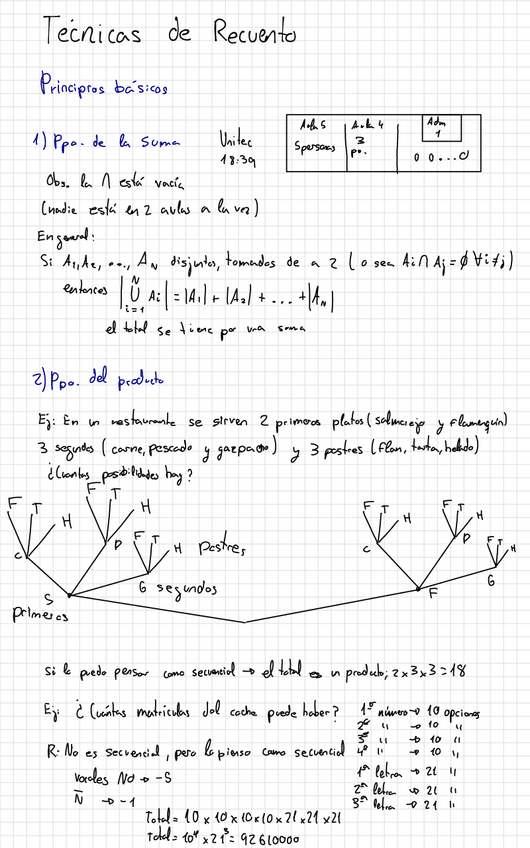 Técnicas de Recuento
Principios básicos
1) Ppo. de la suma
Unitec
18:39
Aula 5
5 personas
Aula 4
3
po.
Adm
1
0 0 ... 0
Obs. la ∩ está vacía
(nadie está en 2 aulas a la vez)
En general:
Si A₁, A₂, ..., A_N disjuntos, tomados de a 2 (o sea Ai ∩ Aj = ∅ ∀ i ≠ j)
entonces |⋃_{i=1}^{N} Ai| = |A₁| + |A₂| + ... + |A_N|
el total se tiene por una suma
2) Ppo. del producto
Ej: En un restaurante se sirven 2 primeros platos (salmorejo y flamenquín)
3 segundos (carne, pescado y gazpacho) y 3 postres (flan, tarta, helado)
¿Cuántas posibilidades hay?
F T H F T H F T H postres
C P G segundos
S
primeros
F T H F T H F T H
C P G
F
si lo puedo pensar como secuencial → el total es un producto; 2x3x3=18
Ej: ¿Cuántas matrículas del coche puede haber?
R: No es secuencial, pero lo pienso como secuencial
vocales NO → -5
Ñ → -1
1º número → 10 opciones
2º " → 10 "
3º " → 10 "
4º " → 10 "
1ª letra → 21 "
2ª letra → 21 "
3ª letra → 21 "
Total = 10 x 10 x 10 x 10 x 21 x 21 x 21
Total = 10⁴ x 21³ = 92610000